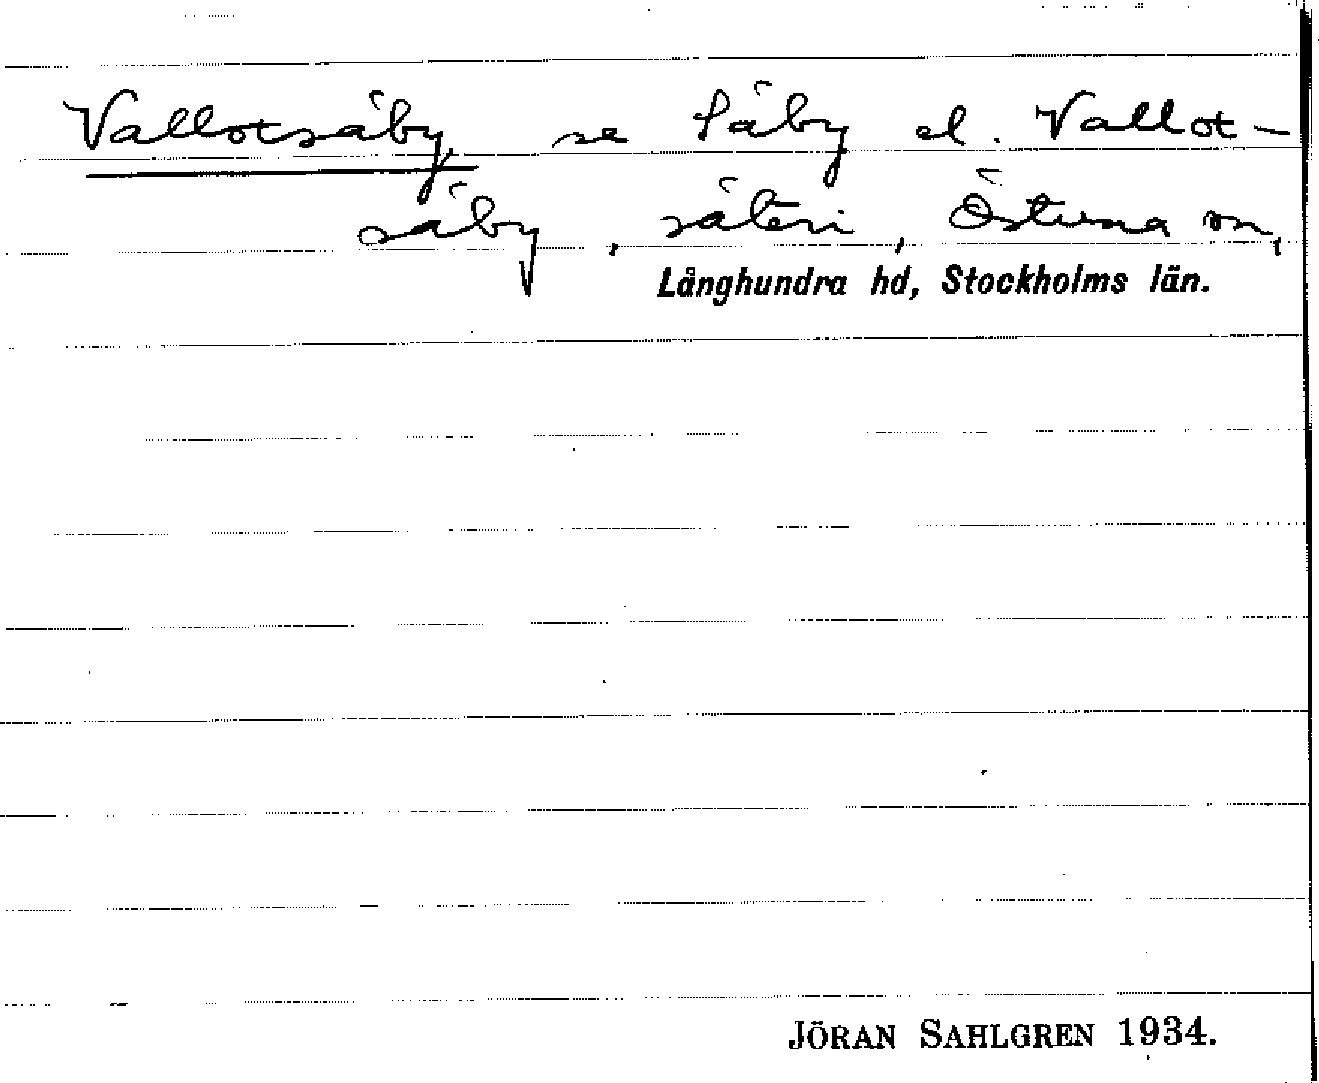 Vallotsäby se Säby el. Vallot-
säby, säteri, Östuna sn,
Långhundra hd, Stockholms län.
JÖRAN SAHLGREN 1934.